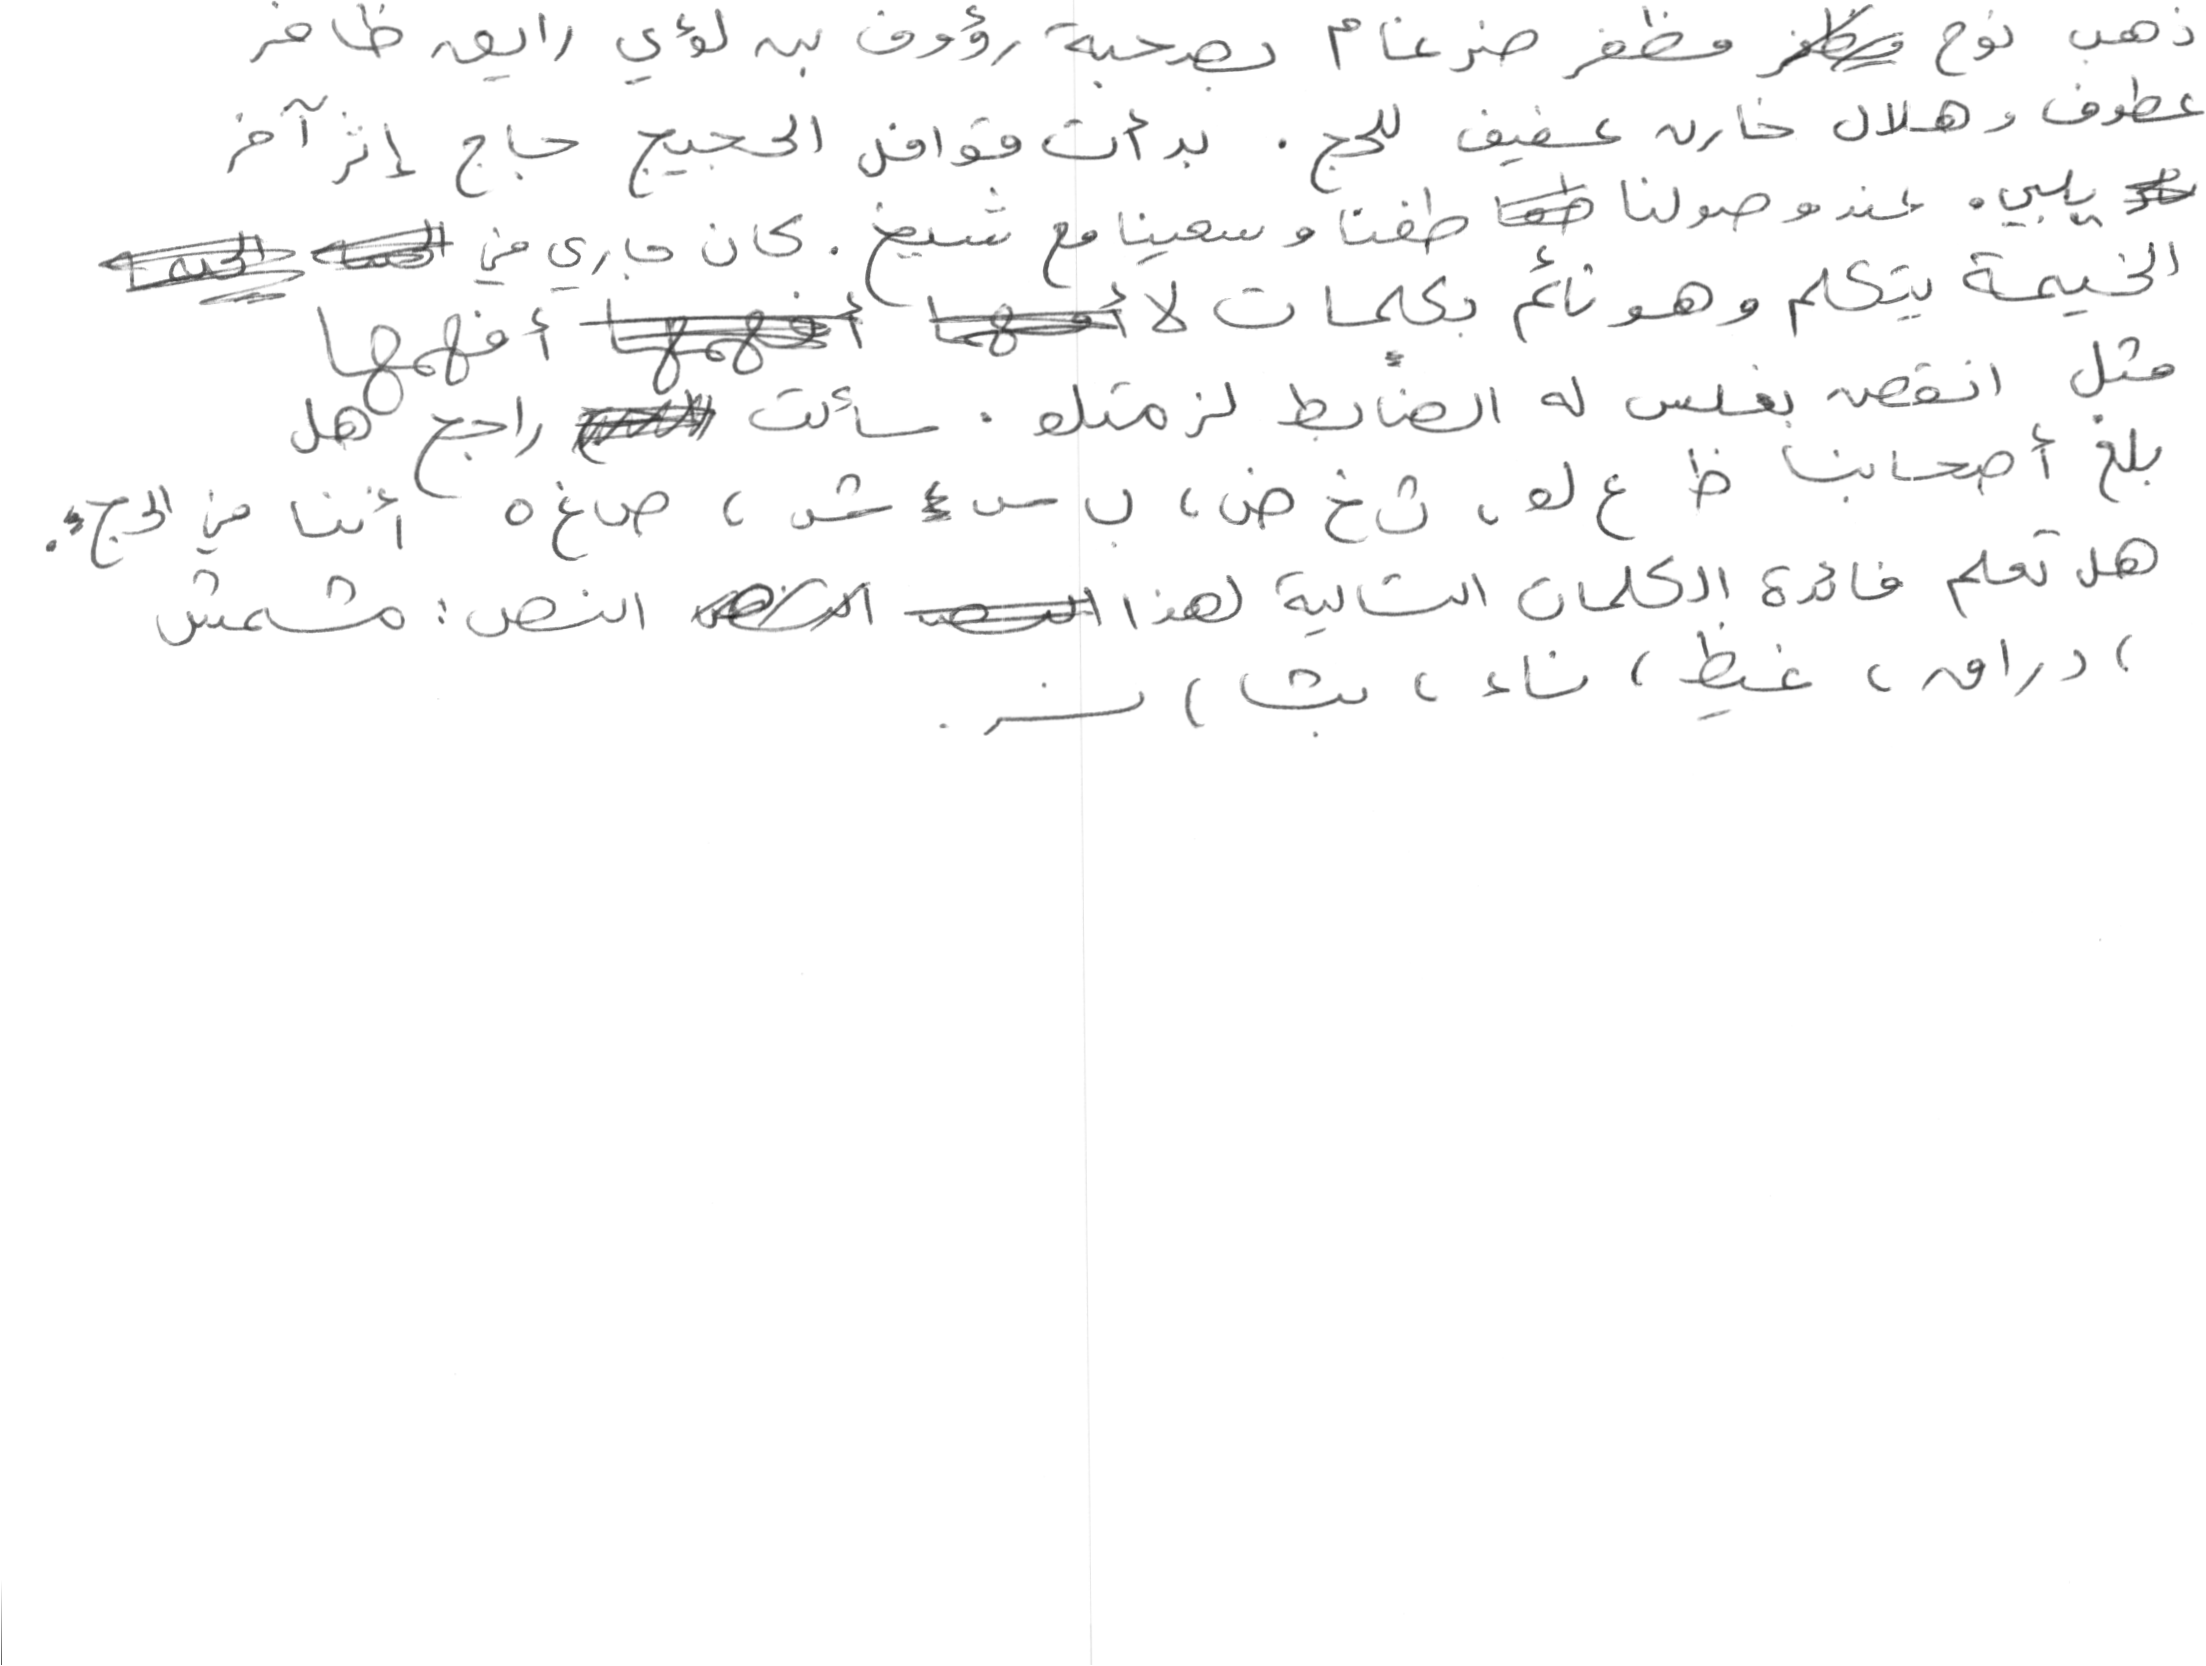 ذهب نوح مظفر ضرغام بصحبة رؤوف بن لؤي رايق ظافر
عطوف وهلال خازن عفيف للحج . بدأت قوافل الحجيج حاج إثر آخر
يلبي. عند وصولنا طفنا وسعينا مع شيخ . كان جاري في
الخيمة يتكلم وهو نائم بكلمات لا أفهمها
مثل انقص بغلس له الضابط لزمتك . سألت راجح هل
بلغ أصحاب ظ ع ك، ث خ ض، ب س ش ، ص غ ه أننا في الحج.
هل تعلم فائدة الكلمات التالية لهذا النص: مشمش
، دراق ، غيظ ، ناء ، بث ،